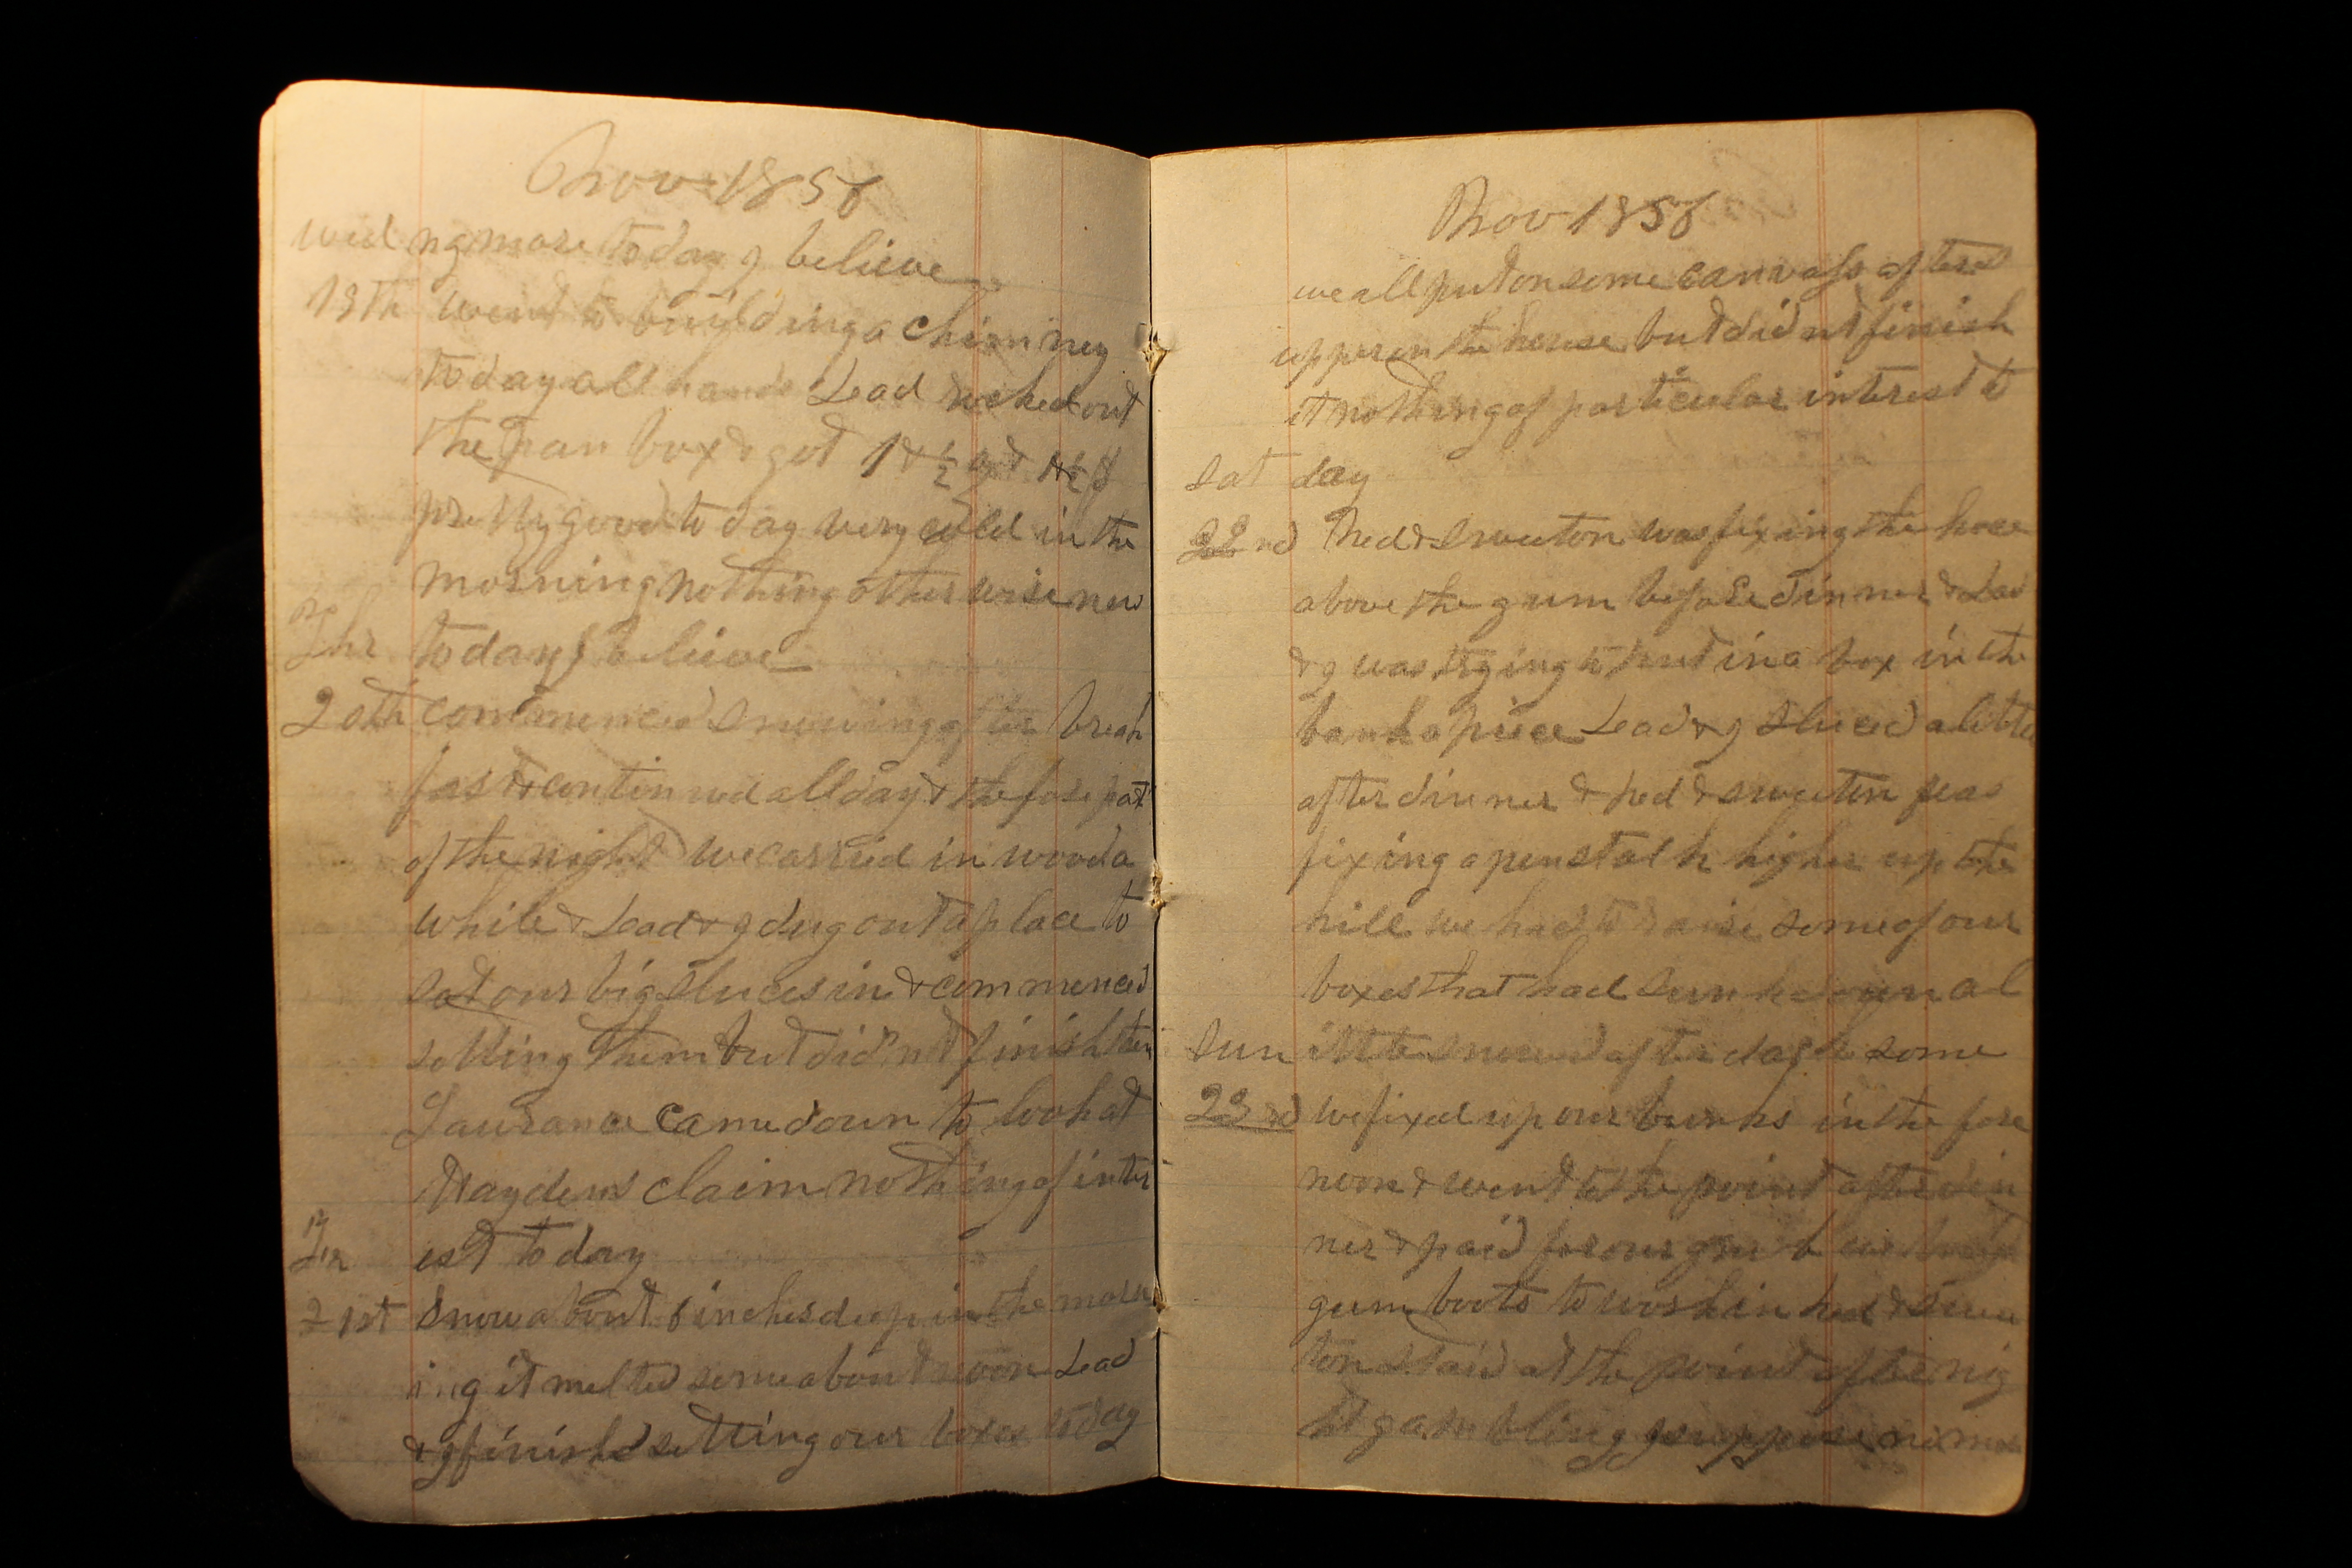 Nov 1856
wed ng more today I believe
19th went to buylding a chimney
today all hands Lead rocked out
the pan box & got 1 & ½
pretty good to day very cold in the
morning nothing otherwise new
Thr today I believe
20th commenced snowing after break
fast & continued all day & the fore part
of the night we carried in wood a
while & Lead & I dug out a place to
set our big sluces in & commenced
setting them but did'nt finish them
Laurance came down to look at
Haydens claim nothing of inter
Fr est to day
21st Snow about 6 inches deep in the morn
ing it melted some about noon Lead
& I finished setting our boxes today
Nov 1856
we all put on some canvass after
upper on the house but did nt finish
it nothing of particular interest to
Sat day
22nd Ned & Sweeton was fixing the hose
above the gum before dinner & Lead
& I was trying to put in a box in the
bank a piece Lead & I sluced a little
after dinner & Ned & Sweeton was
fixing a penstalk higher up the
hill we had to raise some of our
boxes that had sunk down a l
Sun ittle snowed after dark some
23rd we fixed up our bunks in the fore
noon & went to the point after din
ner & paid for our
gum boots to work in Ned & Swee
ton staid at the point after nig
ht gambling I suppose no more